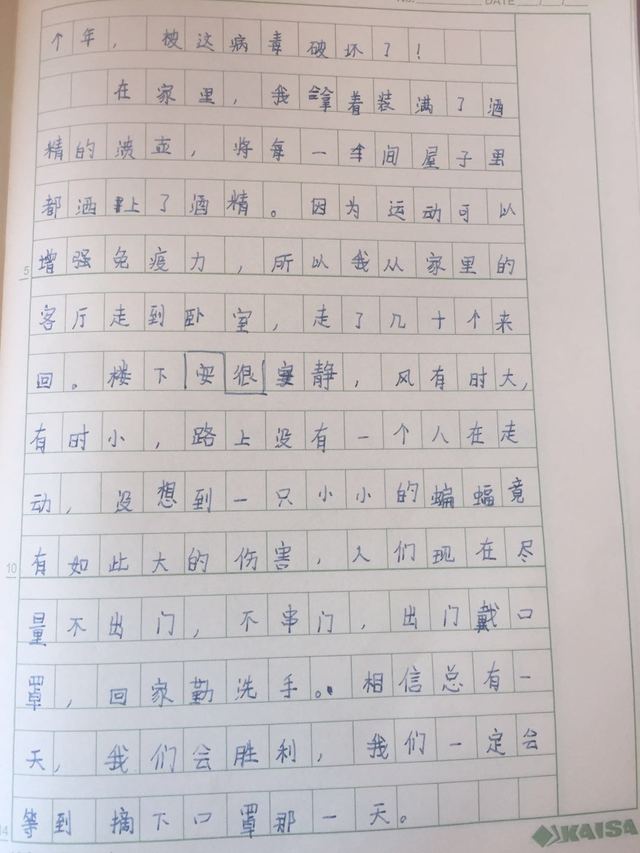 No. DATE / /
个年，被这病毒破坏了！
在家里，我拿着装满了酒
精的渍壶，将每一间屋子里
都洒上了酒精。因为运动可以
5 增强免疫力，所以我从家里的
客厅走到卧室，走了几十个来
回。楼下很安静，风有时大，
有时小，路上没有一个人在走
动，没想到一只小小的蝙蝠竟
10 有如此大的伤害，人们现在尽
量不出门，不串门，出门戴口
罩，回家勤洗手。相信总有一
天，我们会胜利，我们一定会
等到摘下口罩那一天。
14 KAISA